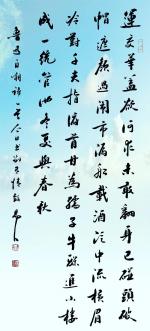 運交華蓋欲何求未敢翻身已碰頭破
帽遮顏過鬧市漏船載酒泛中流橫眉
冷對千夫指俯首甘為孺子牛躲進小樓
成一統管他冬夏與春秋
魯迅自嘲詩一